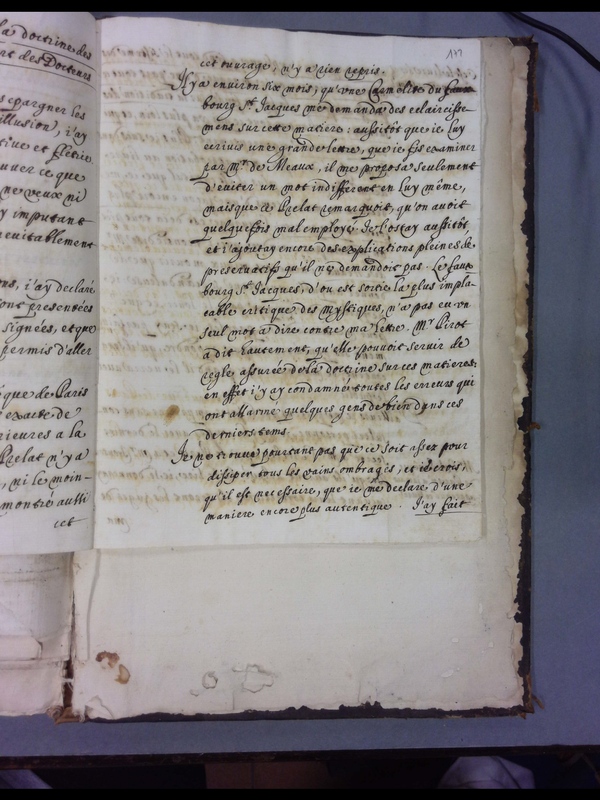 la doctrine des
et des Docteurs
espargner les
illusion), i'ay
tive et flétrie
uver ce que
ne veux ni
y imputant
nevitablement
ons, i'ay declaré
ont presentées
signées, et que
permis d'aller
que de Paris
exacte de
rieures a la
Prelat n'y a
, ni le moin-
montré aussi
cet
117
cet ouvrage, n'y a rien repris.
Il y a environ six mois, qu'une Carmélite du faux-
bourg St. Jacques me demanda des eclaircisse-
mens sur cette matiere: aussitôt que ie luy
ecrivis une grande lettre, que ie fis examiner
par Mr. de Meaux, il me proposa seulement
d'éviter un mot indifferent en luy même,
mais que ce Prelat remarquoit, qu'on avoit
quelquefois mal employé. Je l'ostay aussitôt,
et i'ajoutay encore des explications pleines de
préservatifs qu'il ne demandoit pas. Le faux
bourg St. Jacques, d'ou est sortie la plus impla-
cable critique des Mystiques, n'a pas eu un
seul mot a dire contre ma lettre. Mr. Pirot
a dit hautement, qu'elle pouvoit servir de
regle assurée de la doctrine sur ces matieres;
en effet i'y ay condamné toutes les erreurs qui
ont allarmé quelques gens de bien dans ces
derniers tems.
Je ne trouve pourtant pas que ce soit assez pour
dissiper tous les vains ombrages, et ie crois,
qu'il est necessaire, que ie me declare d'une
maniere encore plus autentique. J'ay fait